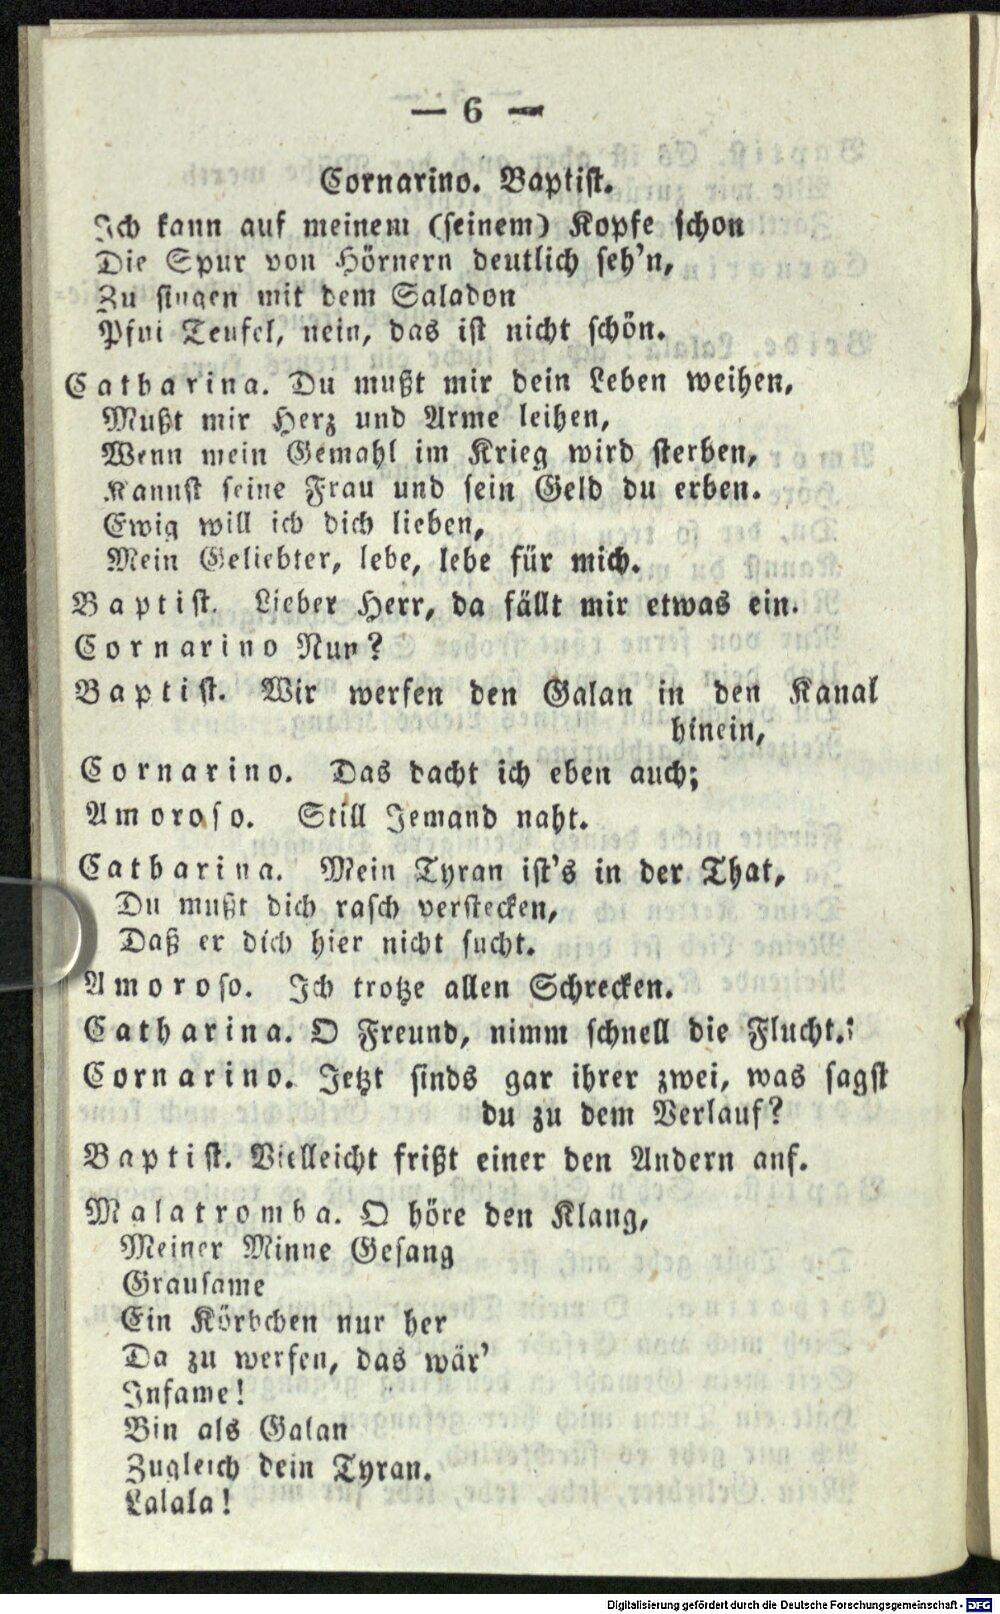 — 6 —
Cornarino. Baptist.
Ich kann auf meinem (seinem) Kopfe schon
Die Spur von Hörnern deutlich seh'n,
Zu singen mit dem Saladon
Pfui Teufel, nein, das ist nicht schön.
Catharina. Du mußt mir dein Leben weihen,
Mußt mir Herz und Arme leihen,
Wenn mein Gemahl im Krieg wird sterben,
Kannst seine Frau und sein Geld du erben.
Ewig will ich dich lieben,
Mein Geliebter, lebe, lebe für mich.
Baptist. Lieber Herr, da fällt mir etwas ein.
Cornarino Nun?
Baptist. Wir werfen den Galan in den Kanal
hinein,
Cornarino. Das dacht ich eben auch;
Amoroso. Still Jemand naht.
Catharina. Mein Tyran ist's in der That,
Du mußt dich rasch verstecken,
Daß er dich hier nicht sucht.
Amoroso. Ich trotze allen Schrecken.
Catharina. O Freund, nimm schnell die Flucht.
Cornarino. Jetzt sinds gar ihrer zwei, was sagst
du zu dem Verlauf?
Baptist. Vielleicht frißt einer den Andern auf.
Malatromba. O höre den Klang,
Meiner Minne Gesang
Grausame
Ein Körbchen nur her
Da zu werfen, das wär'
Infame!
Bin als Galan
Zugleich dein Tyran.
Lalala!
Digitalisierung gefördert durch die Deutsche Forschungsgemeinschaft - DFG